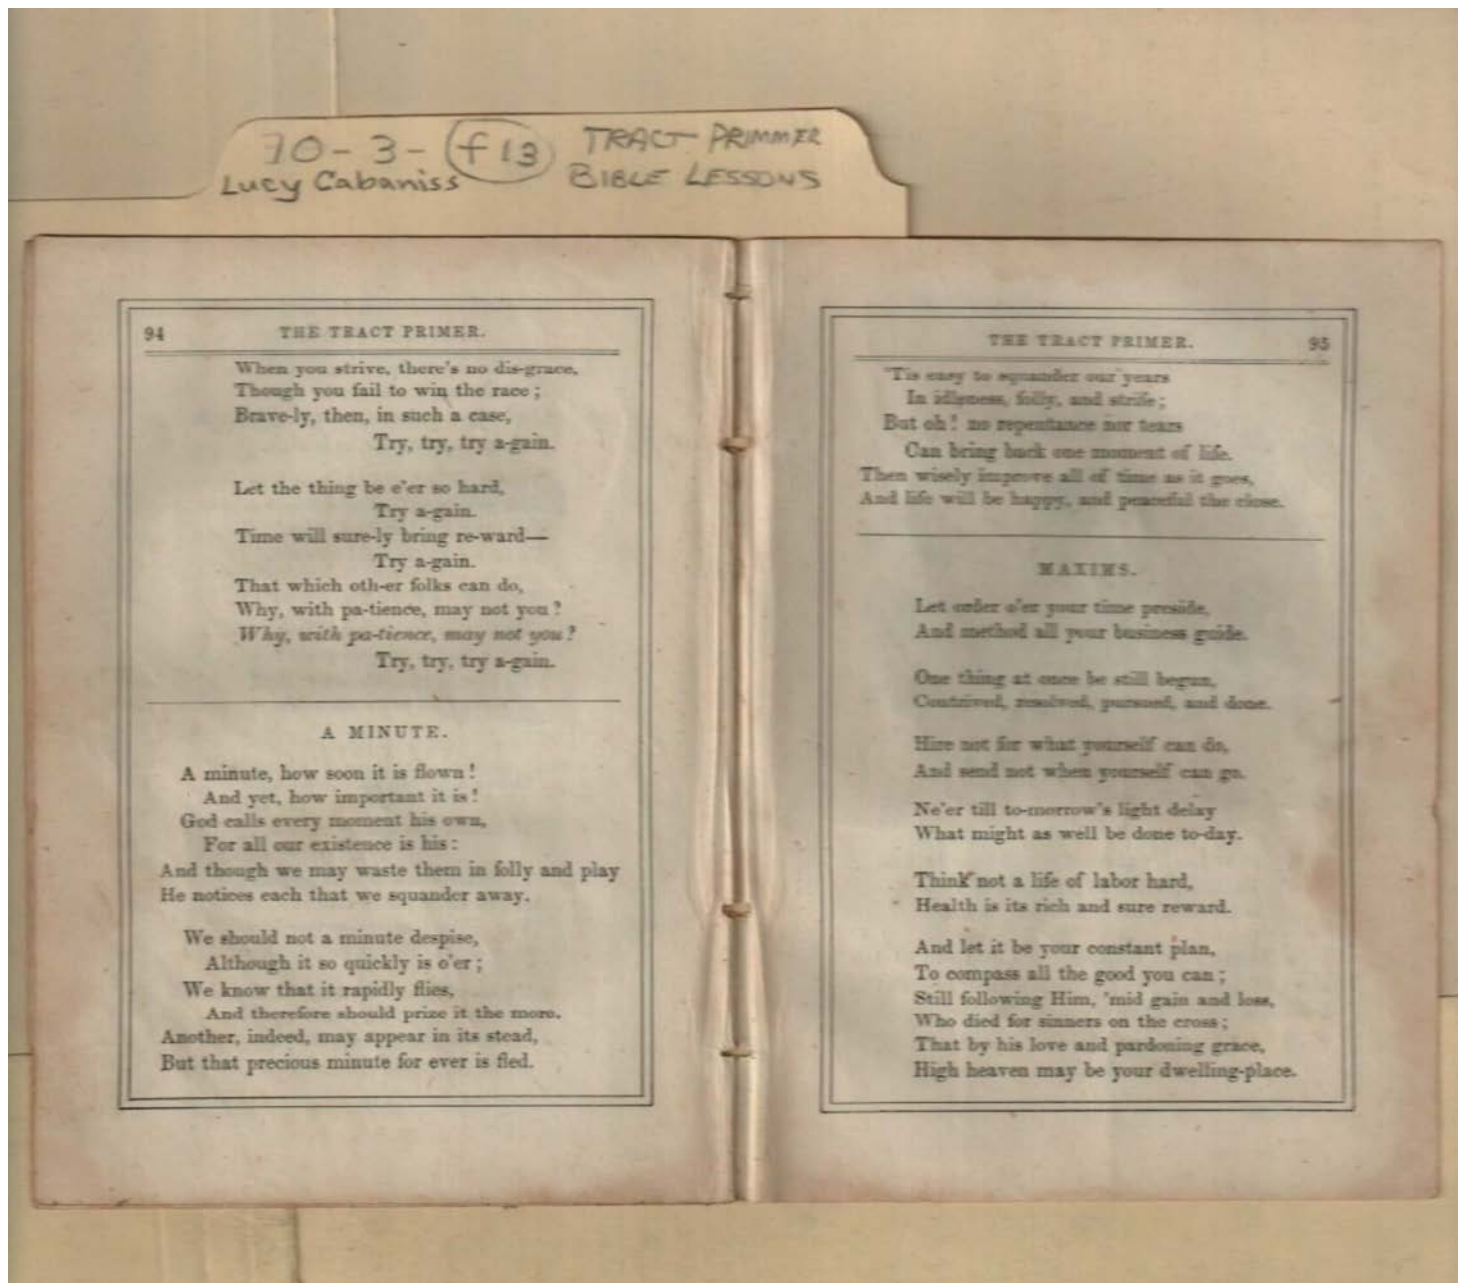 70-3-f13 TRACT PRIMMER
Lucy Cabaniss BIBLE LESSONS
94 THE TRACT PRIMER.
When you strive, there's no dis-grace,
Though you fail to win the race;
Brave-ly, then, in such a case,
Try, try, try a-gain.
Let the thing be e'er so hard,
Try a-gain.
Time will sure-ly bring re-ward—
Try a-gain.
That which oth-er folks can do,
Why, with pa-tience, may not you?
Why, with pa-tience, may not you?
Try, try, try a-gain.
A MINUTE.
A minute, how soon it is flown!
And yet, how important it is!
God calls every moment his own,
For all our existence is his:
And though we may waste them in folly and play
He notices each that we squander away.
We should not a minute despise,
Although it so quickly is o'er;
We know that it rapidly flies,
And therefore should prize it the more.
Another, indeed, may appear in its stead,
But that precious minute for ever is fled.
THE TRACT PRIMER. 95
'Tis easy to squander our years
In idleness, folly, and strife;
But oh! no repentance nor tears
Can bring back one moment of life.
Then wisely improve all of time as it goes,
And life will be happy, and peaceful the close.
MAXIMS.
Let order o'er your time preside,
And method all your business guide.
One thing at once be still begun,
Contrived, resolved, pursued, and done.
Hire not for what yourself can do,
And send not when yourself can go.
Ne'er till to-morrow's light delay
What might as well be done to-day.
Think not a life of labor hard,
Health is its rich and sure reward.
And let it be your constant plan,
To compass all the good you can;
Still following Him, 'mid gain and loss,
Who died for sinners on the cross;
That by his love and pardoning grace,
High heaven may be your dwelling-place.